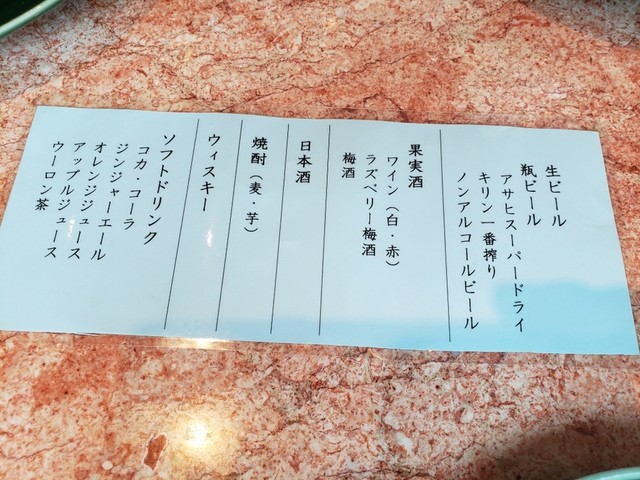 生ビール
瓶ビール
アサヒスーパードライ
キリン一番搾り
ノンアルコールビール
果実酒
ワイン（白・赤）
ラズベリー梅酒
梅酒
日本酒
焼酎（麦・芋）
ウィスキー
ソフトドリンク
コカ・コーラ
ジンジャーエール
オレンジジュース
アップルジュース
ウーロン茶